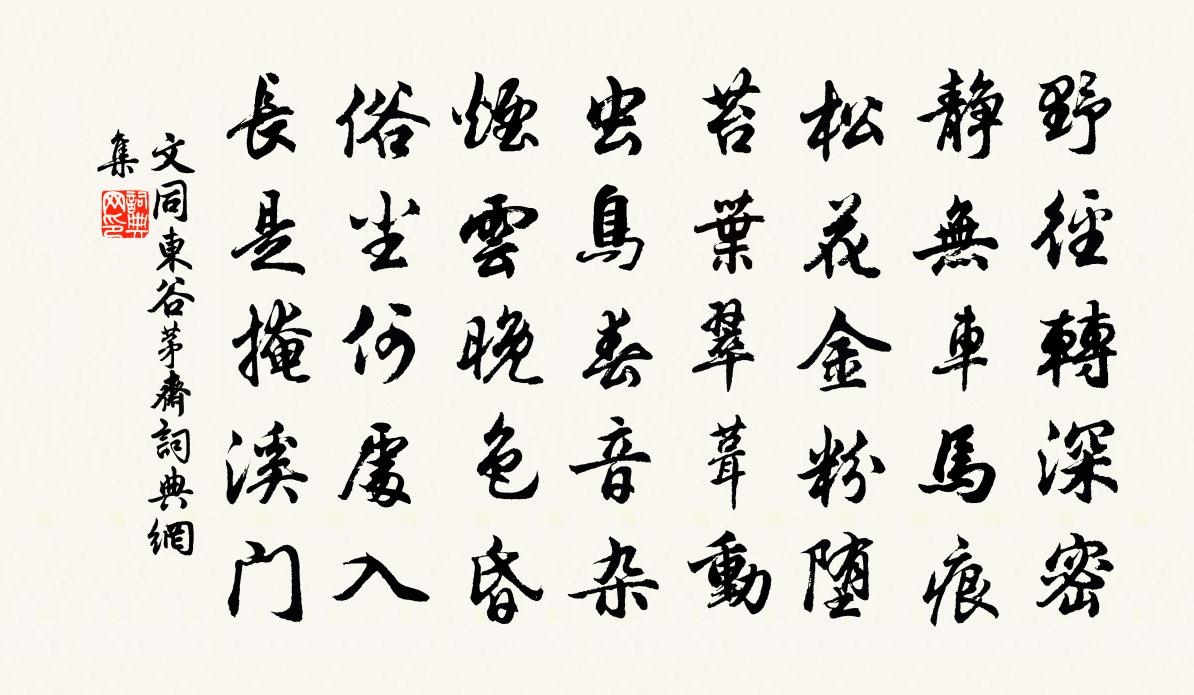 野徑轉深密
靜無車馬痕
松花金粉墮
苔葉翠葺動
虫鳥春音杂
煙雲晚色昏
俗尘何處入
長是掩溪门
文同東谷茅齋詞典網
集
詞典
网印